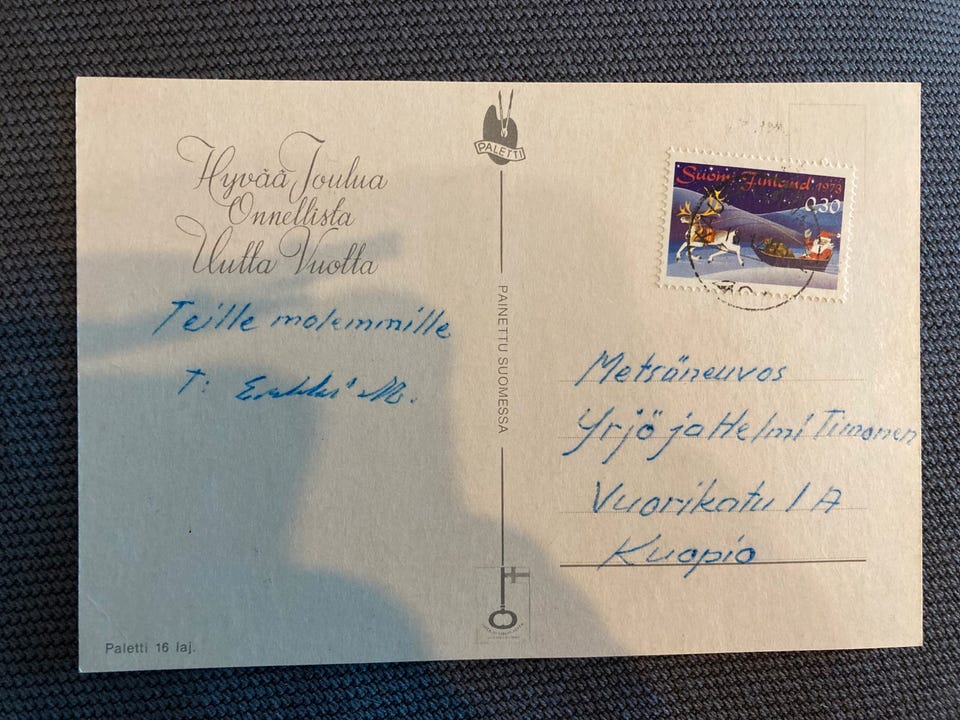 Hyvää Joulua
Onnellista
Uutta Vuotta
Teille molemmille
T: Erkki M.
Paletti 16 laj.
PALETTI
PAINETTU SUOMESSA
Suomi Finland 1973
0,30
Metsäneuvos
Yrjö ja Helmi Timonen
Vuorikatu 1 A
Kuopio